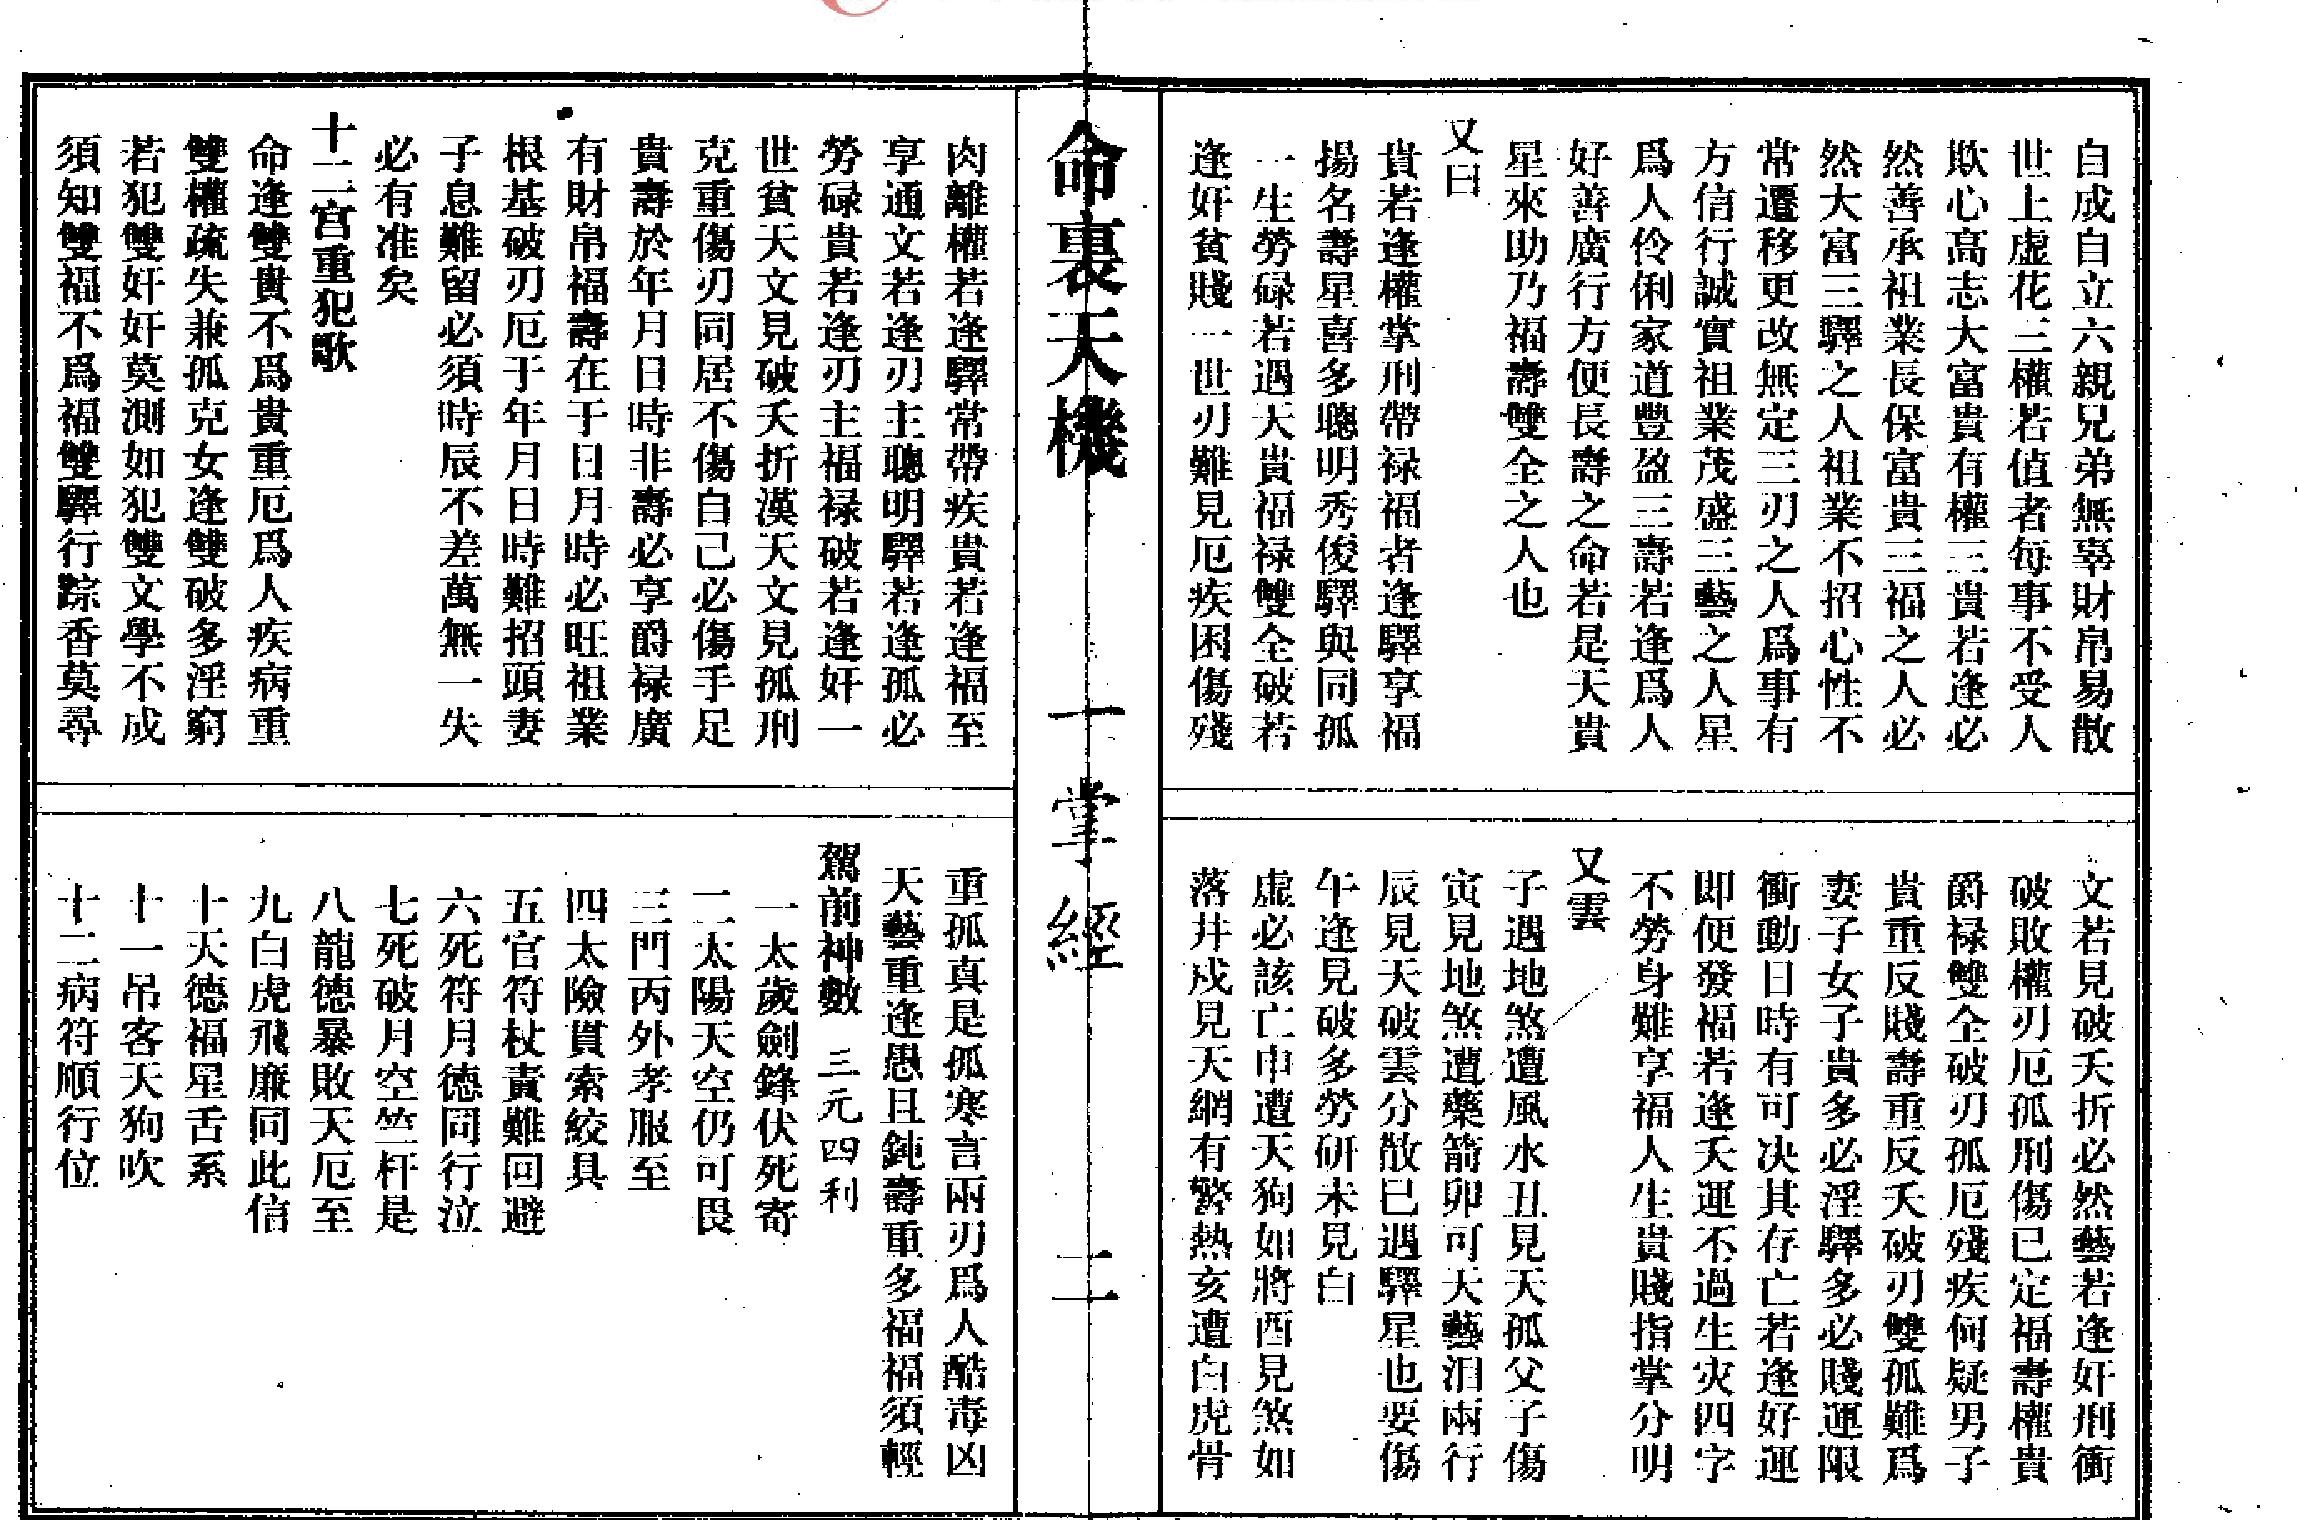 自成自立六親兄弟無辜財帛易散
世上虛花三權若值者每事不受人
欺心高志大富貴有權三貴若逢必
然善承祖業長保富貴三福之人必
然大富三驛之人祖業不招心性不
常遷移更改無定三刃之人爲事有
方信行誠實祖業茂盛三藝之人星
爲人伶俐家道豐盈三壽若逢爲人
好善廣行方便長壽之命若是天貴
星來助乃福壽雙全之人也
又曰
貴若逢權掌刑帶禄福者逢驛享福
揚名壽星喜多聰明秀俊驛與同孤
一生勞碌若遇天貴福禄雙全破若
逢奸貧賤一世刃難見厄疾困傷殘
文若見破夭折必然藝若逢奸刑衝
破敗權刃厄孤刑傷已定福壽權貴
爵禄雙全破刃孤厄殘疾何疑男子
貴重反賤壽重反夭破刃雙孤難爲
妻子女子貴多必淫驛多必賤運限
衝動日時有可决其存亡若逢好運
即便發福若逢夭運不過生灾四字
不勞身難享福人生貴賤指掌分明
又雲
子遇地煞遭風水丑見天孤父子傷
寅見地煞遭藥箭卯可天藝泪兩行
辰見天破雲分散巳遇驛星也要傷
午逢見破多勞研未見白
虛必該亡申遭天狗如將酉見煞如
落井戌見天網有驚熱亥遭白虎骨
命裏天機 一掌經 二
肉離權若逢驛常帶疾貴若逢福至
享通文若逢刃主聰明驛若逢孤必
勞碌貴若逢刃主福禄破若逢奸一
世貧天文見破夭折漢天文見孤刑
克重傷刃同居不傷自己必傷手足
貴壽於年月日時非壽必享爵禄廣
有財帛福壽在于日月時必旺祖業
根基破刃厄于年月日時難招頭妻
子息難留必須時辰不差萬無一失
必有准矣
十二宫重犯歌
命逢雙貴不爲貴重厄爲人疾病重
雙權疏失兼孤克女逢雙破多淫窮
若犯雙奸奸莫測如犯雙文學不成
須知雙福不爲福雙驛行踪香莫尋
重孤真是孤寒言兩刃爲人酷毒凶
天藝重逢愚且鈍壽重多福福須輕
駕前神數 三元四利
一太歲劍鋒伏死寄
二太陽天空仍可畏
三門丙外孝服至
四太險貫索絞具
五官符杖責難回避
六死符月德同行泣
七死破月空竺杆是
八龍德暴敗天厄至
九白虎飛廉同此信
十天德福星舌系
十一吊客天狗吹
十二病符順行位